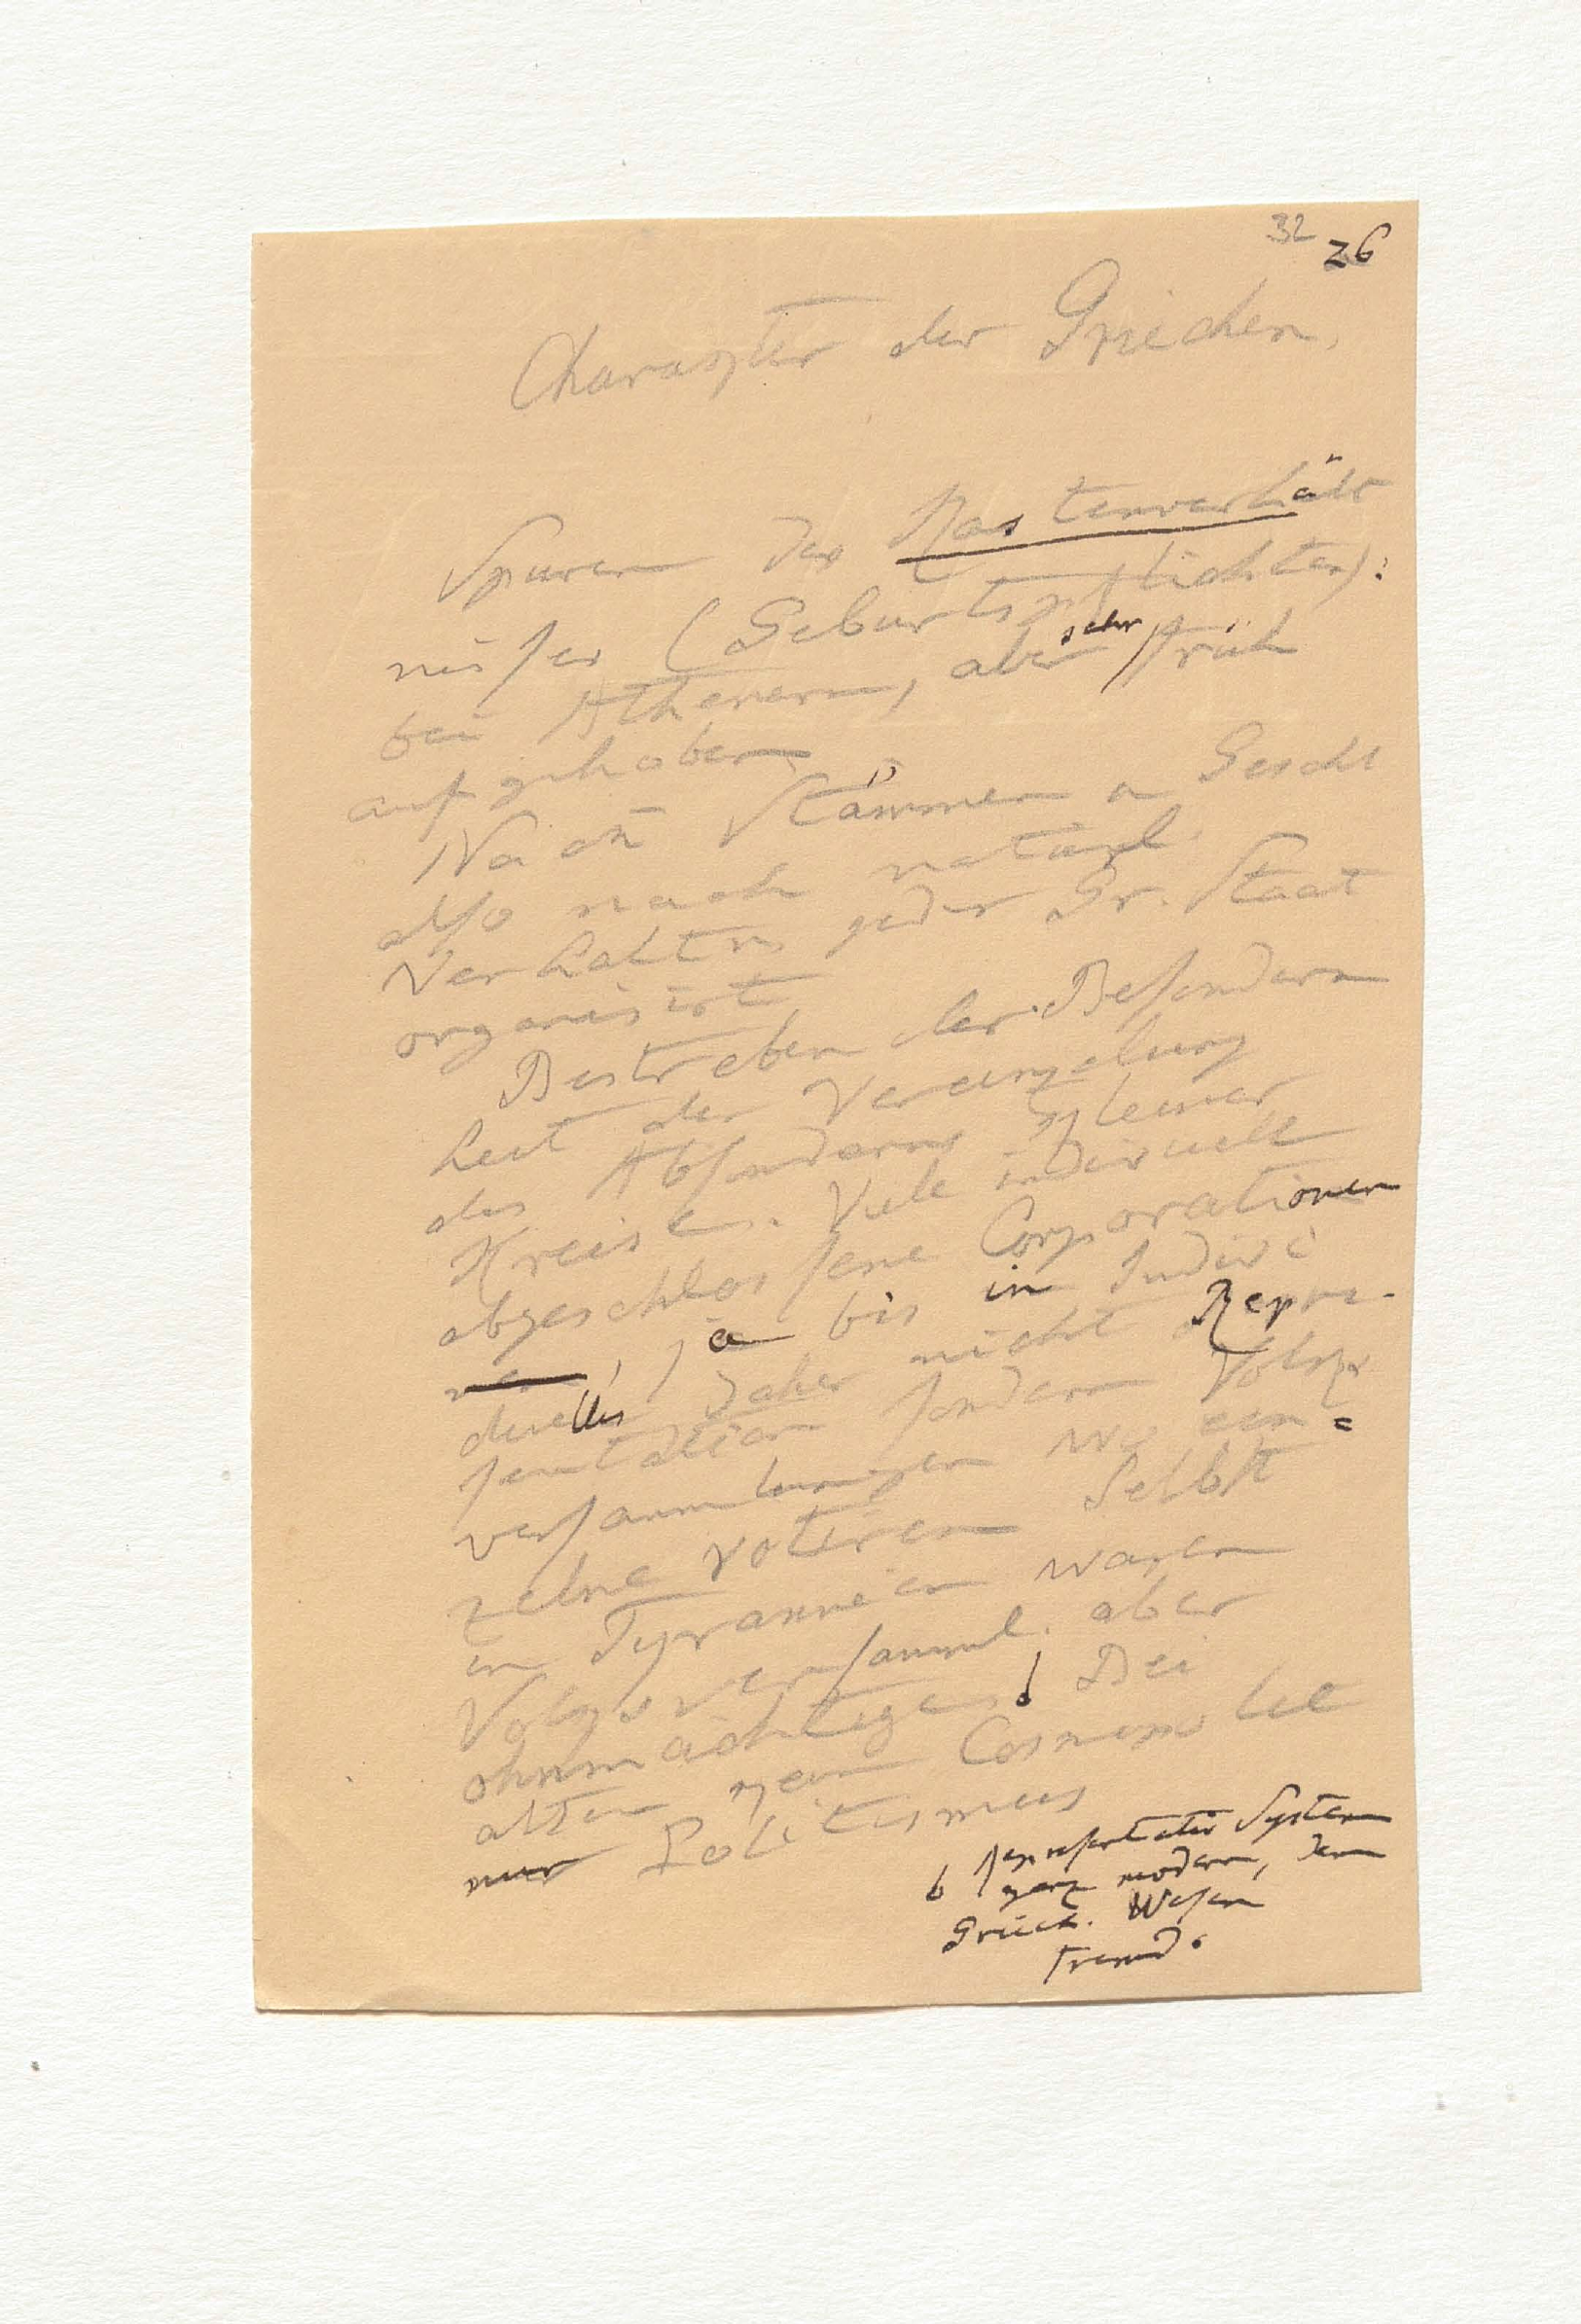 32 26
Charakter der Griechen.
Spuren des Kastenverhält
nisses (Geburtspflichten):
bei Athenern, aber sehr früh
aufgehoben
Nach Stämmen u Geschl
also nach natürl.
Verhältn jeder Gr. Staat
organisirt
Bestreben der Besondern
heit der Vereinzelung
des Absonderns kleiner
Kreise. Viele individuell
abgeschlossene Corporationen
ja bis in Indivi
duelles daher nicht Reprä-
sentation sondern Volks
versammlungen wo ein=
zelne votiren Selbst
in Tyrannein waren
Volksversamml. aber
ohnmächtige. Bei
alten kein Cosmopo
nur Politismus
Repräsentativ System
ganz modern, dem
Griech. Wesen
fremd.